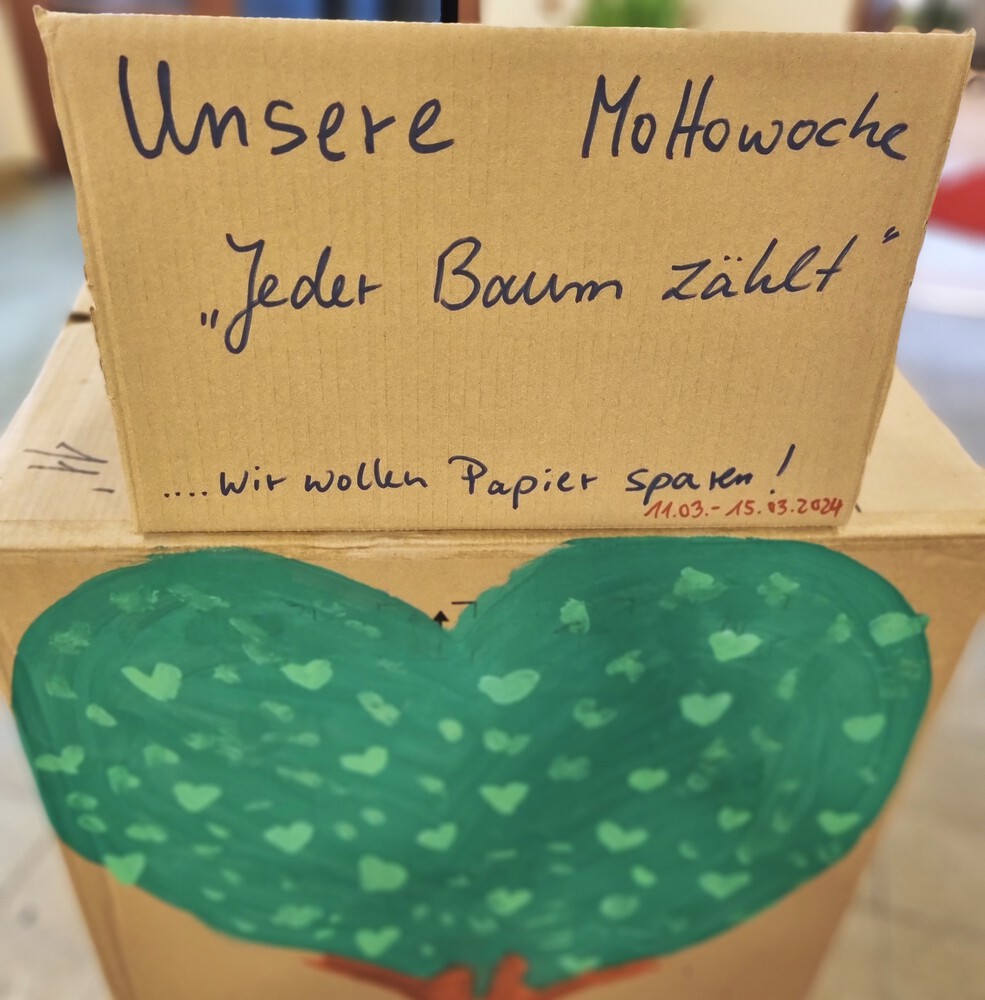 Unsere Mottowoche
„Jeder Baum zählt“
....wir wollen Papier sparen!
11.03.-15.03.2024